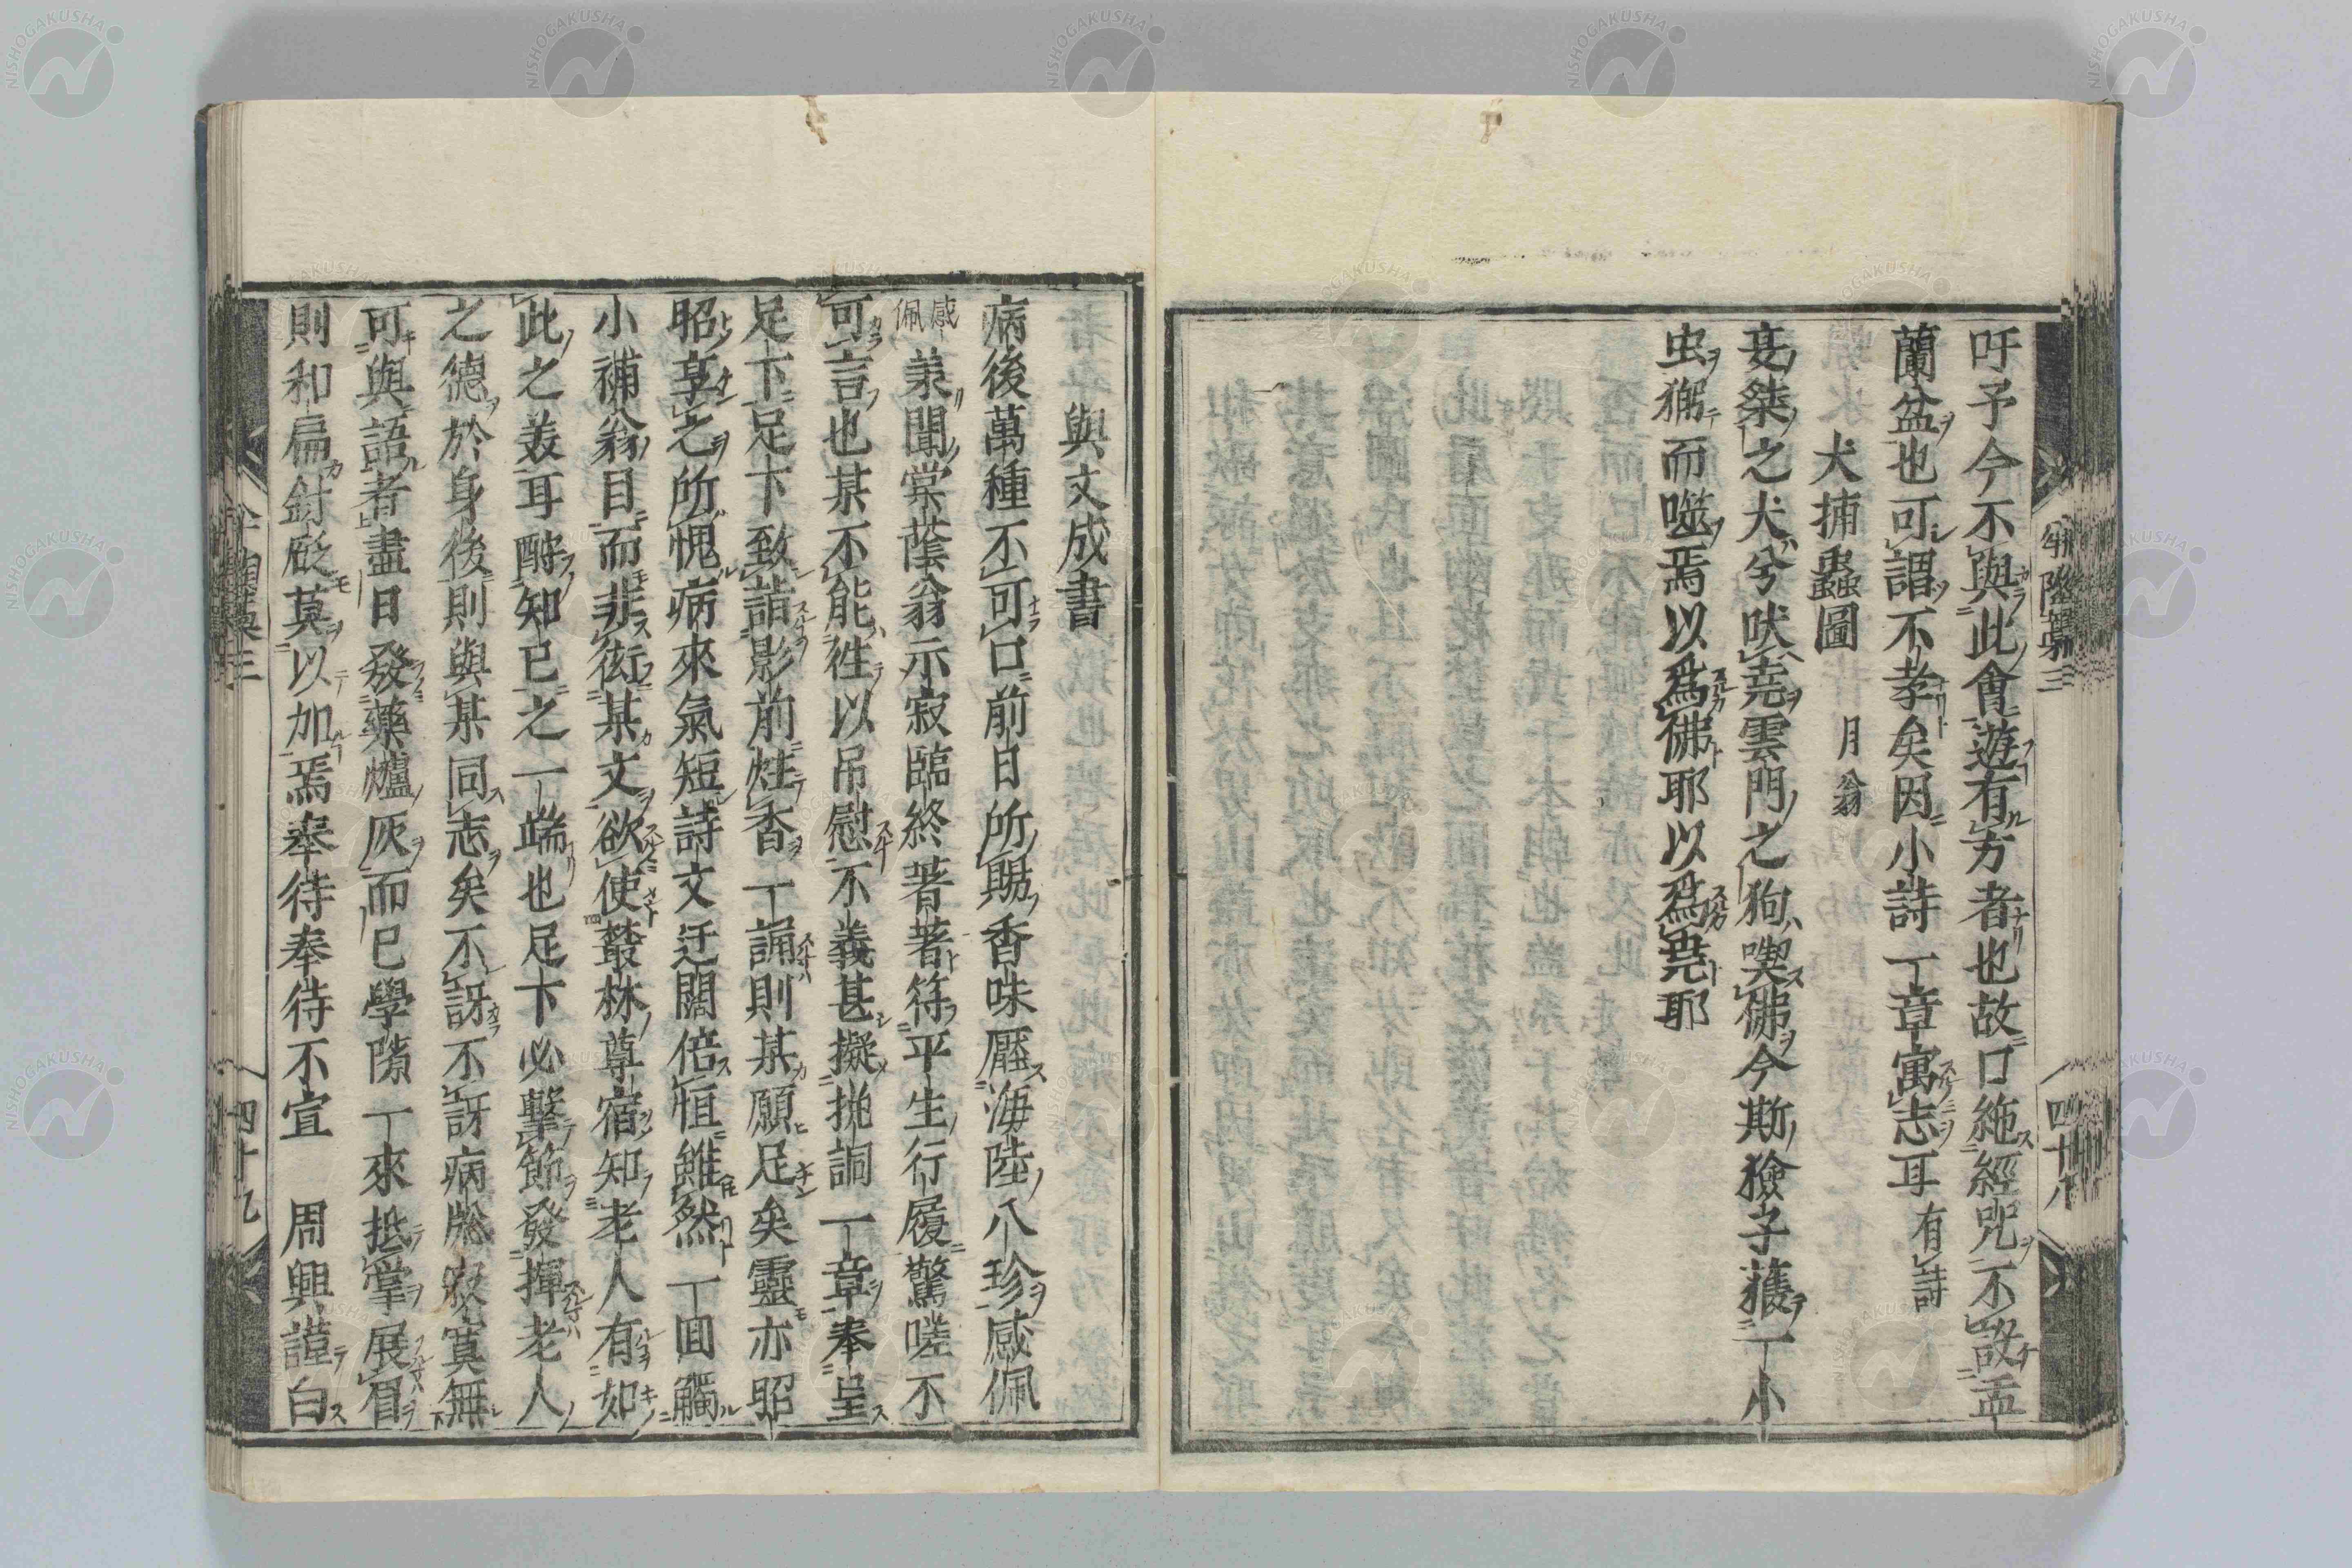 吁予今不與此會遊有方者也故口絁經咒不設盂
蘭盆也可謂不孝矣因小詩一章寓志耳有詩
犬捕蟲圖 月翁
亳桀之犬兮吠堯雲門之狗喫佛今斯獫子獲一小
虫獬而噬焉以爲佛耶以爲堯耶
半陶藁三
四十八
與文成書
病後萬種不可口前日所賜香味壓海陸八珍感佩
感佩兼聞棠蔭翁示寂臨終著著符平生行履驚嗟不
可言也某不能徃以吊慰不義甚擬挽詞一章奉呈
足下足下致詣影前炷香一誦則某願足矣靈亦昭
昭享之所愧病來氣短詩文迂闊倍恒雖然一回觸
小補翁目而非衒某文欲使叢林尊宿知老人有如
此之美耳酧知己之一端也足下必擊節發揮老人
之德於身後則與某同志矣不訝不訝病牕寂寞無
可與語者盡日發藥爐灰而已學隙一來抵掌展眉
則和扁針砭莫以加焉奉待奉待不宣 周興謹白
半陶藁三
四十九
NISHOGAKUSHA